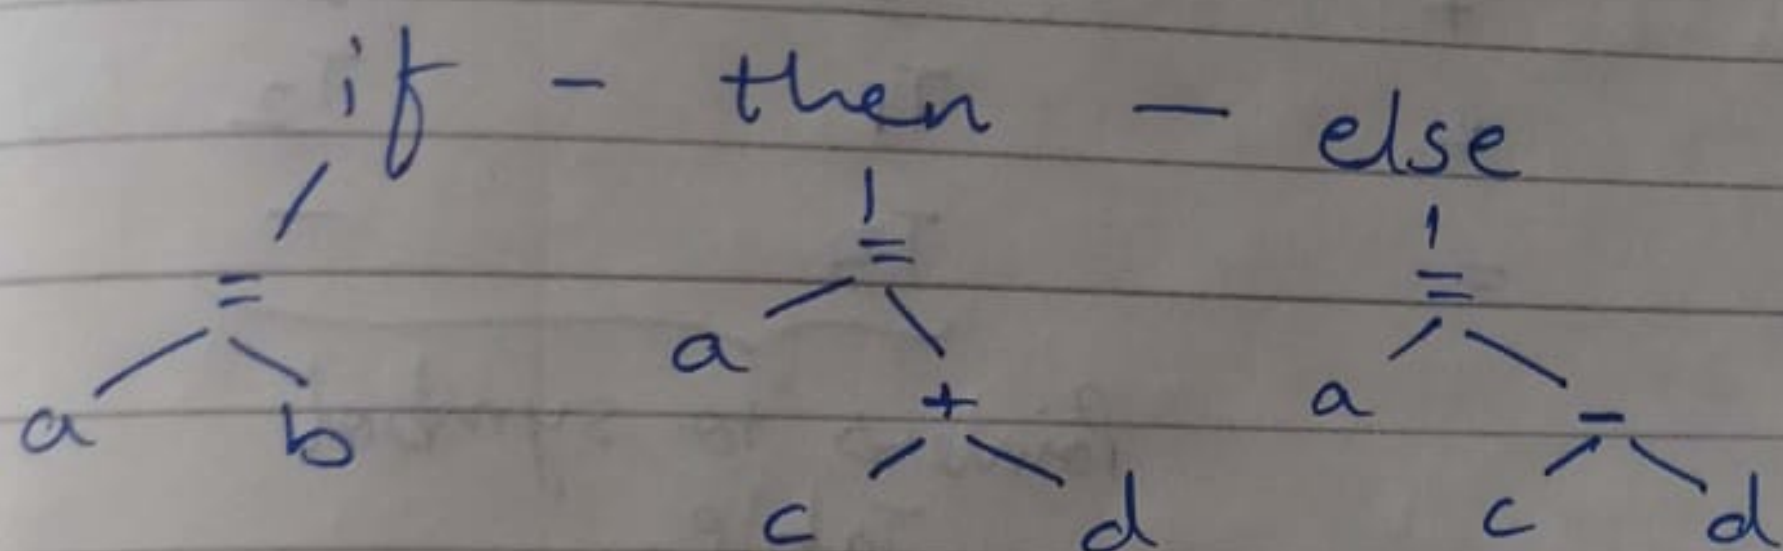 if - then - else
= = =
a b a + a -
c d c d